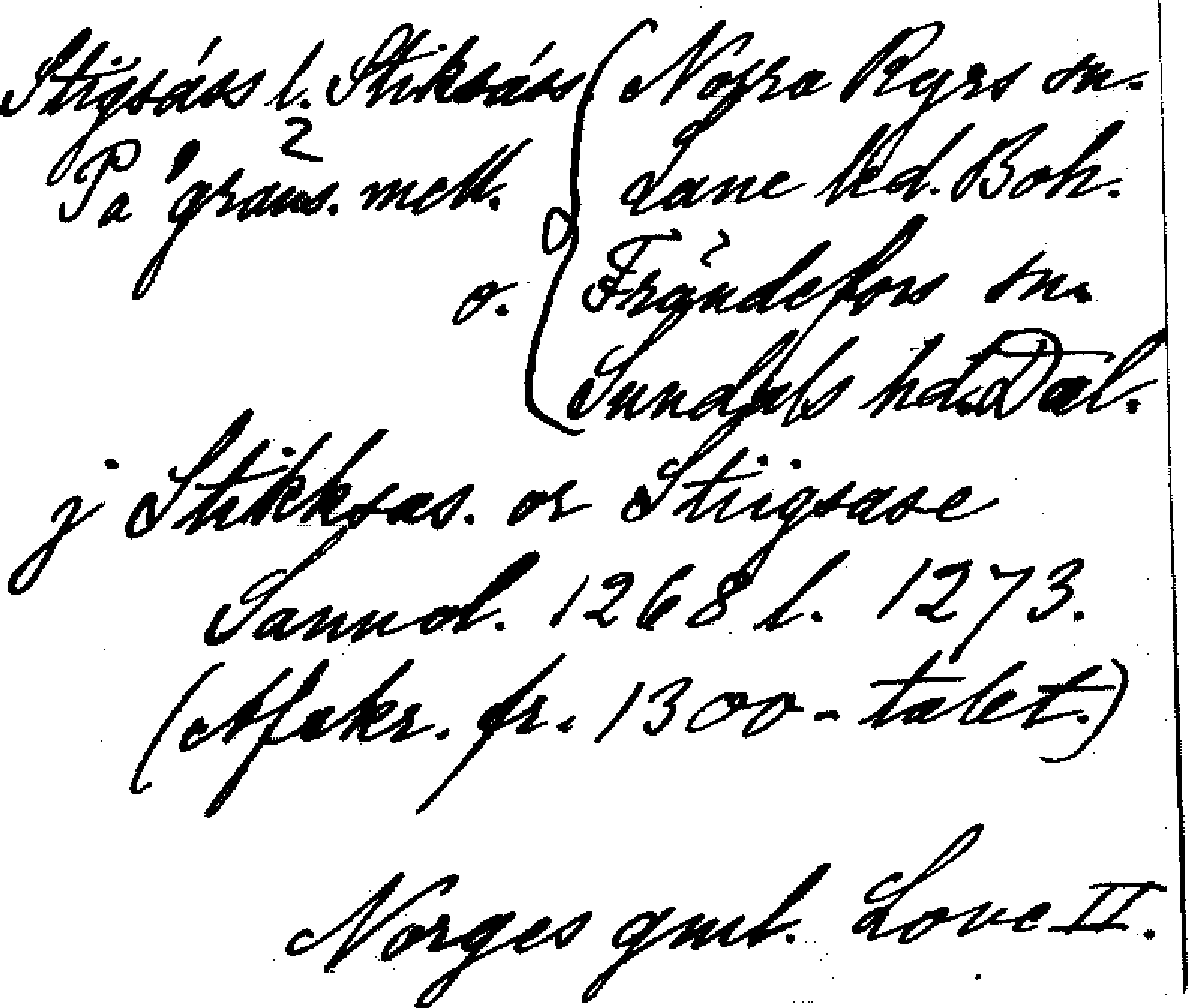 Stigsáss l. Stiksáss { Norra Ryrs sn.
På gräns. mell. Lane hd. Boh.
o. { Frändefors sn.
Sundals hd. Dal.
j Stikksas. or Stiigsase
Sannol. 1268 l. 1273.
(Afskr. fr. 1300-talet.)
Norges gml. Love II.